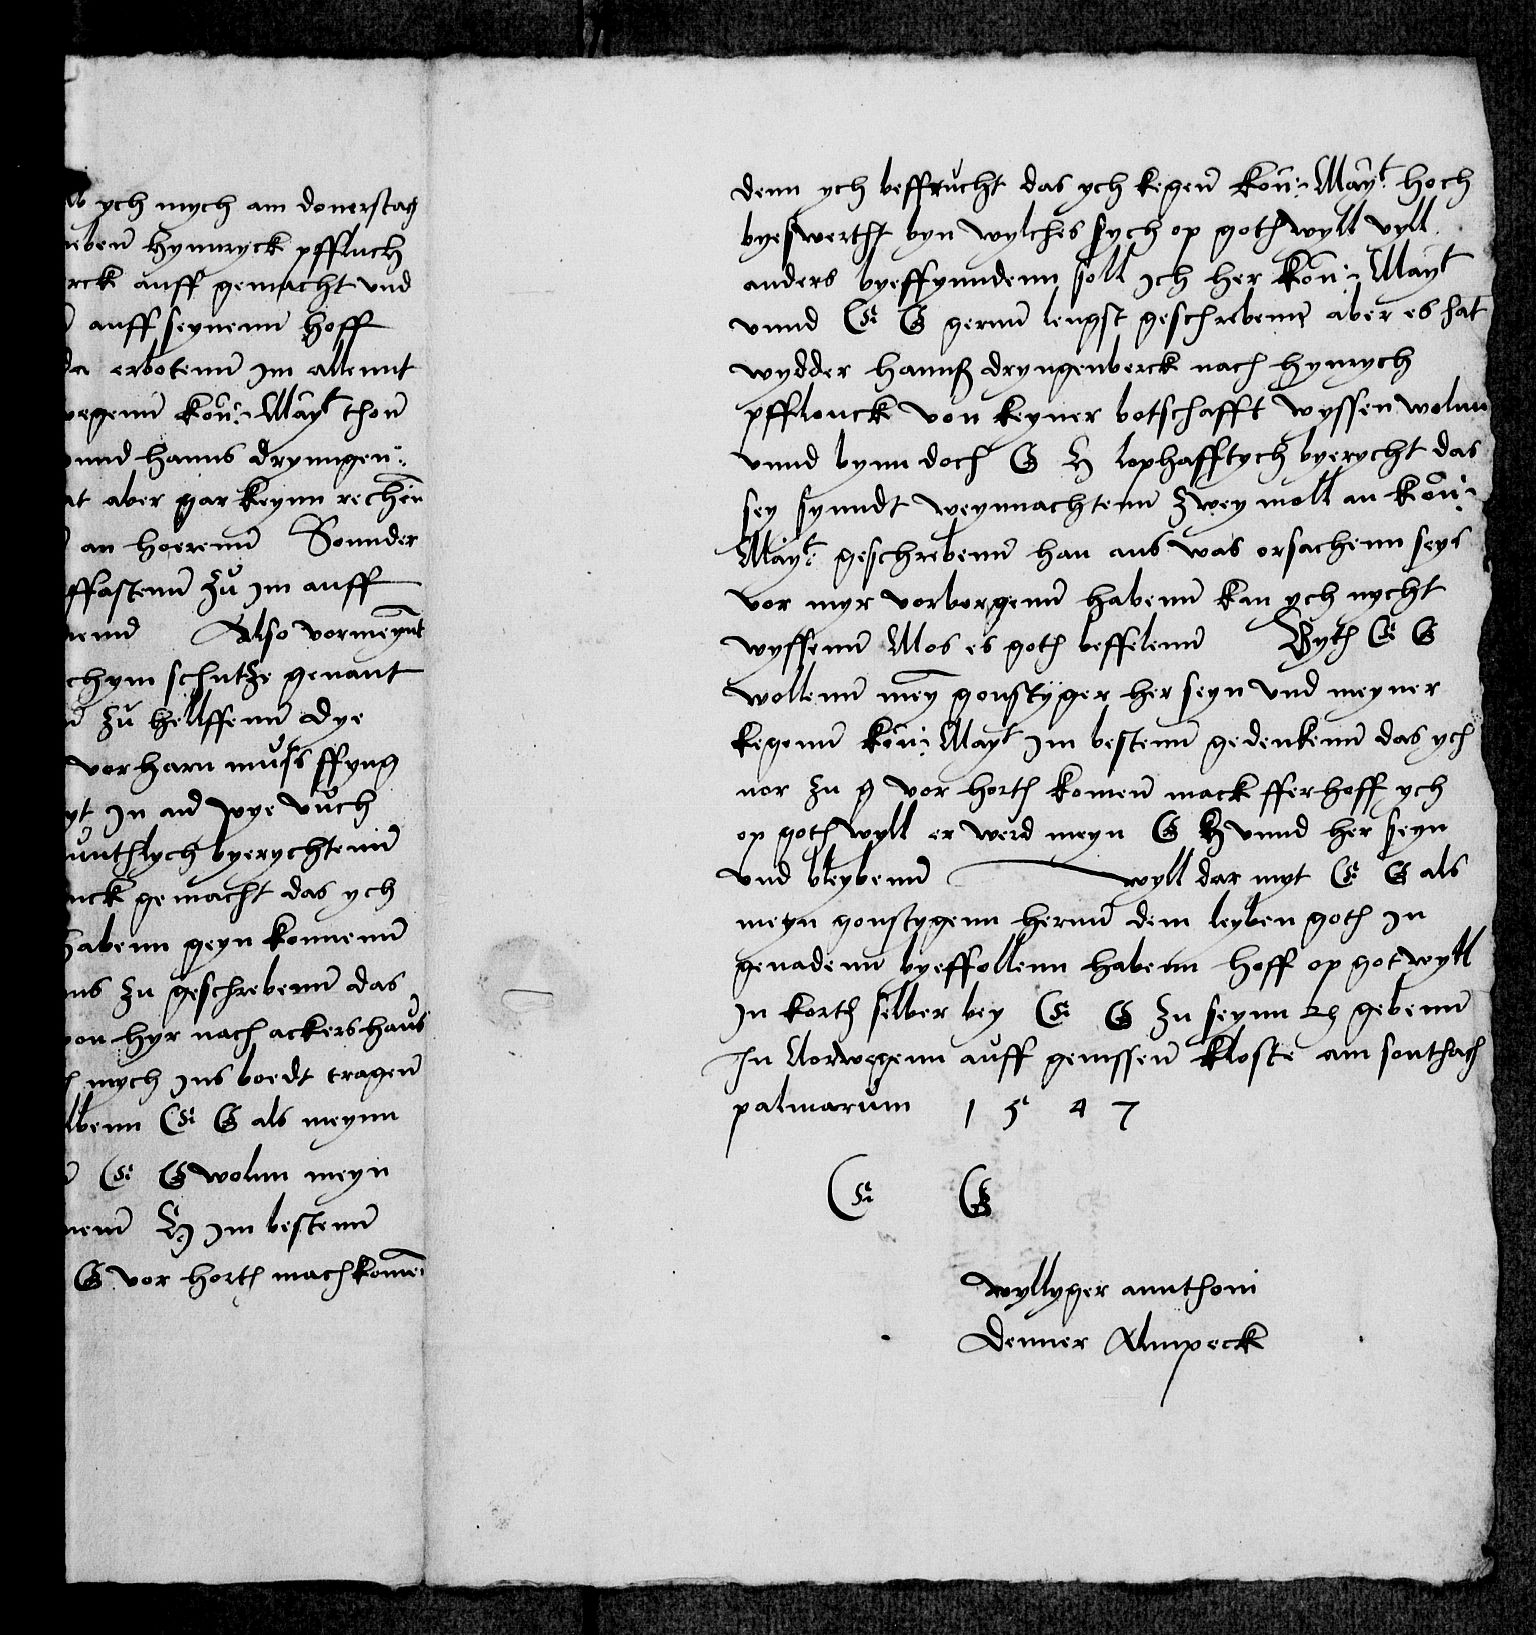 ych mych am donerstag
nebenn Hynnryck pffluch
rck auff gemacht und
auff seynenn hoff
da erbotenn Im allennt
wegenn kon: Mayt thon
unnd hanns drynngen:
at aber gar keynn rechen
an hoerenn Sonnder
ffastenn zu im auff
nemd Also vormeynt
chym schutze genant
zu hellffenn dye
vorharn muss ffyng
yt In ad wye vuch
unthlych byerychtenn
nck gemacht das ych
habenn geyn konnenn
ns zu geschrebenn das
von hyr nach ackershaus
mych Ins boedt tragen
lbenn E G als meynn
E G wolnn meyn
nenn H Im bestenn
G vor horth mach komen
denn ych beffrucht das ych kegen kon: Mayt hoch
byeswertht byn wylches sych op goth wyll vyll
anders byeffynndenn soll Ich her kon: Mayt
vnnd E G gernn lengst geschrebenn aber es hat
wydder hannß dryngenberck nach hynrych
pfflouck von keyner botschafft wyssen wolnn
vnnd bynn doch G H lophafftych byerycht das
sey synndt weynnachtenn zwey moll an kon:
Mayt: geschrebenn han aus was orsachenn seys
vor myr vorborgenn habenn kan ych nycht
wyssenn Mos es goth beffelenn Byth E G
wollenn mey gonstyger her seyn vnd meyner
kegenn kon: Mayt Im bestenn gedenkenn das ych
nor zu g vor horth komen mack fferhoff ych
op goth wyll er werd meyn G H vnnd her seyn
vnd bleybenn wyll dar myt E G als
meyn gonstygenn hernn dem leyben goth In
genadenn byeffollenn habenn hoff op got wyll
In korth selber bey E G zu seynn gebenn
In Norwegenn auff gemssen kloste am sonthach
palmarum 1 5 4 7
E G
wyllyger annthoni
Denner Almpeck